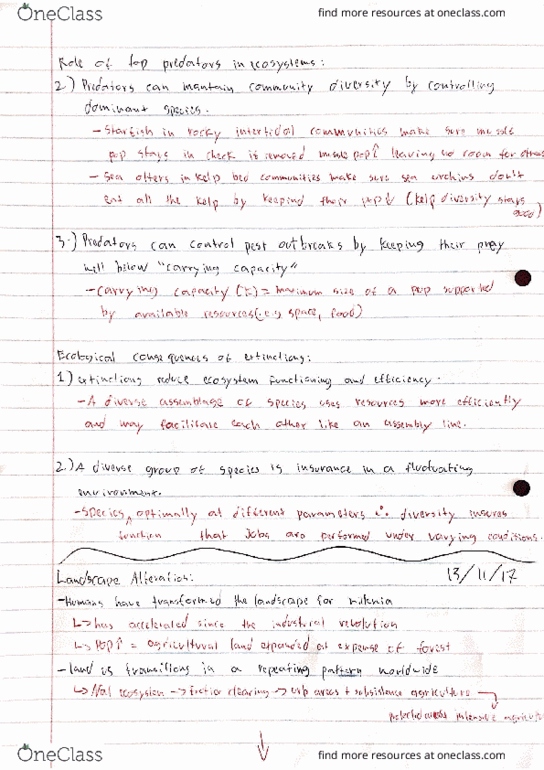 OneClass
find more resources at oneclass.com
Role of top predators in ecosystems:
2.) Predators can mantain community diversity by controlling
dominant species.
- Starfish in rocky intertidal communities make sure mussle
pop stays in check if removed mussle pop↑ leaving no room for others
- Sea otters in kelp bed communities make sure sea urchins don't
eat all the kelp by keeping their pop↓ (kelp diversity stays
good)
3.) Predators can control pest outbreaks by keeping their prey
well below "carrying capacity"
- Carrying capacity (K) = maximum size of a pop supported
by available resources (i.e., space, food)
Ecological consequences of extinctions:
1) extinctions reduce ecosystem functioning and efficiency.
- A diverse assemblage of species uses resources more efficiently
and may facilitate each other like an assembly line.
2.) A diverse group of species is insurance in a fluctuating
environment.
- Species optimally at different parameters ∴ diversity insures
function
that Jobs are performed under varying conditions.
13/11/17
Landscape Alteration:
- Humans have transformed the landscape for
↳ has accelerated since the industrial revolution
↳ Pop↑ = agricultural land expanded at expense of forest
- land is transitions in a repeating pattern worldwide
↳ Nat ecosystem → frontier clearing → urb areas + subsistence agriculture
protected areas intensive agriculture
OneClass
find more resources at oneclass.com